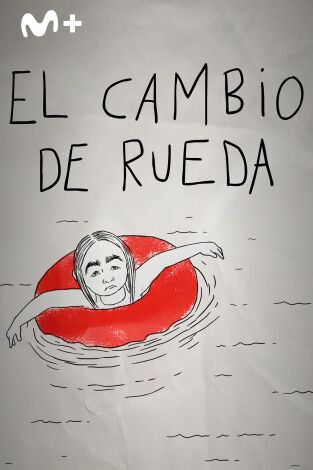 M+
EL CAMBIO
DE RUEDA